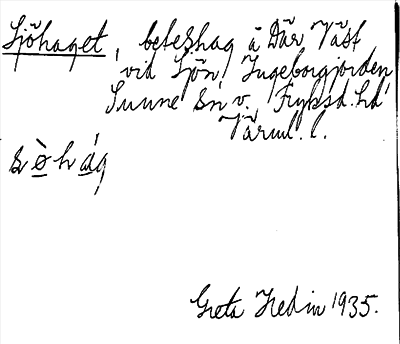 Sjöhaget, beteshag å Där Väst
vid Sjön, Ingeborgjorden
Sunne sn v. Fryksd. hd
Värml. l.
s ò h á g
Greta Hedin 1935.